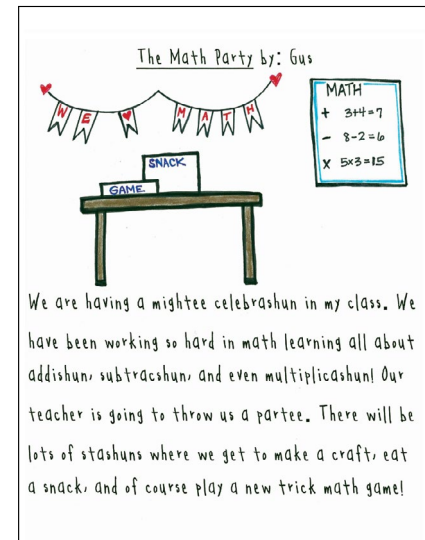 The Math Party by: Gus
WE ♥ MATH
MATH
+ 3+4=7
- 8-2=6
x 5x3=15
SNACK
GAME
We are having a mightee celebrashun in my class. We
have been working so hard in math learning all about
addishun, subtracshun, and even multiplicashun! Our
teacher is going to throw us a partee. There will be
lots of stashuns where we get to make a craft, eat
a snack, and of course play a new trick math game!